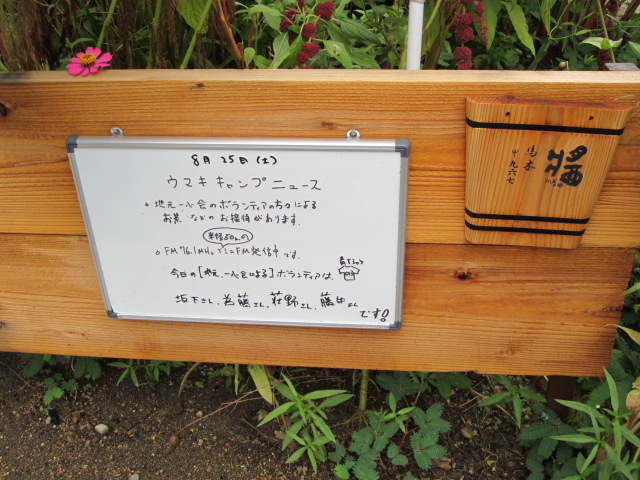 8月25日(土)
ウマキキャンプニュース
地元一心会のボランティアの方々による
お茶などのお接待があります。
半径50mの
FM76.1MHzでミニFM発信中です。
今日の[地元一心会による]ボランティアは、
坂下さん、斉藤さん、荘野さん、藤田さん
です!
醤
馬木
甲九六七